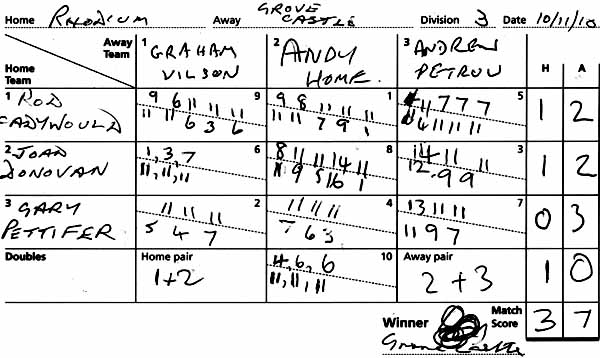 Home RHODIUM Away GROVE CASTLE Division 3 Date 10/11/10
Away Team
Home Team
1 GRAHAM VILSON
2 ANDY HOME.
3 ANDREW PETROU
H A
1 ROD
9 6 11 11 11 9
11 11 6 3 6
9 8 11 11 11 1
11 11 7 9
11 7 7 7 5
4 11 11 11
1 2
2 JOAO DONOVAN
1, 3, 7 6
11, 11, 11
8 11 11 14 11 8
11 9 5 16
14 11 11 3
12 9 9
1 2
3 GARY PETTIFER
11 11 11 2
5 4 7
11 11 11 4
7 6 3
13 11 11 7
11 9 7
0 3
Doubles
Home pair
1+2
4, 6, 6 10
11, 11, 11
Away pair
2+3
1 0
Winner Grove Castle
Match Score 3 7